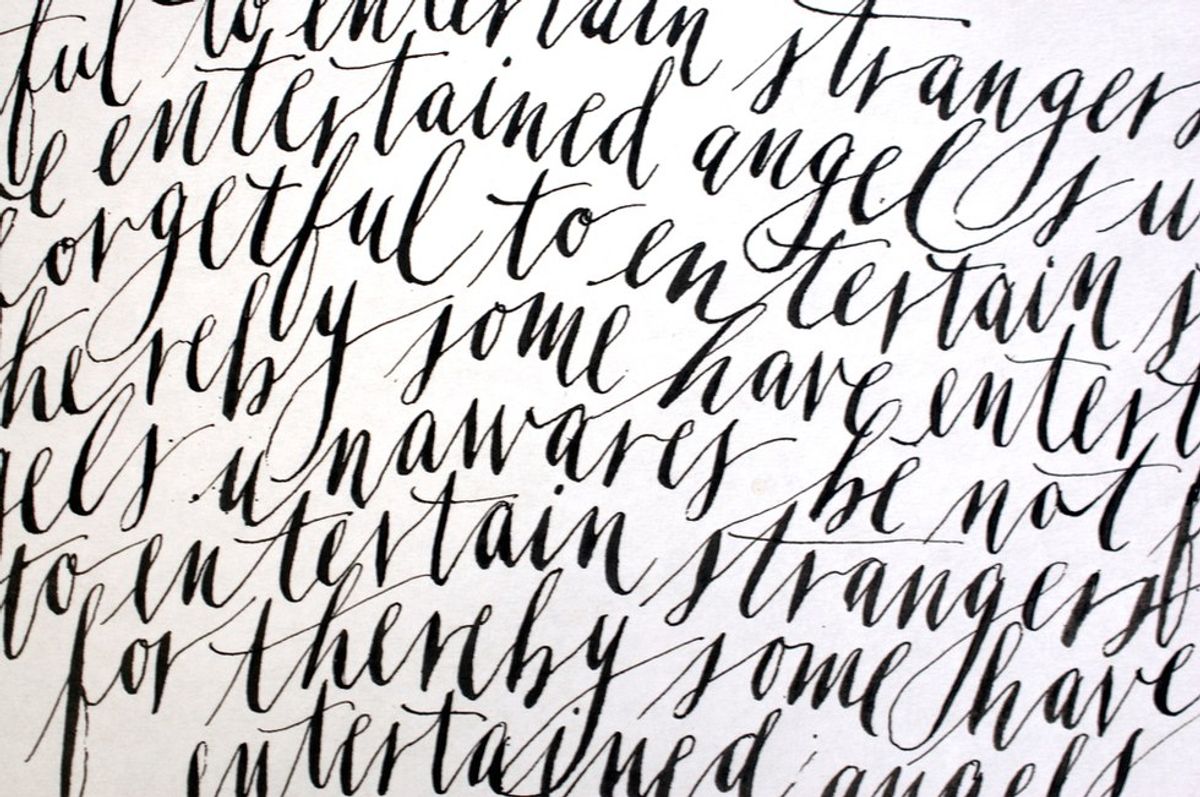 ful to entertain strangers
ve entertained angels u
forgetful to entertain s
thereby some have entert
gels unawares be not f
to entertain strangers
for thereby some have
entertained angels